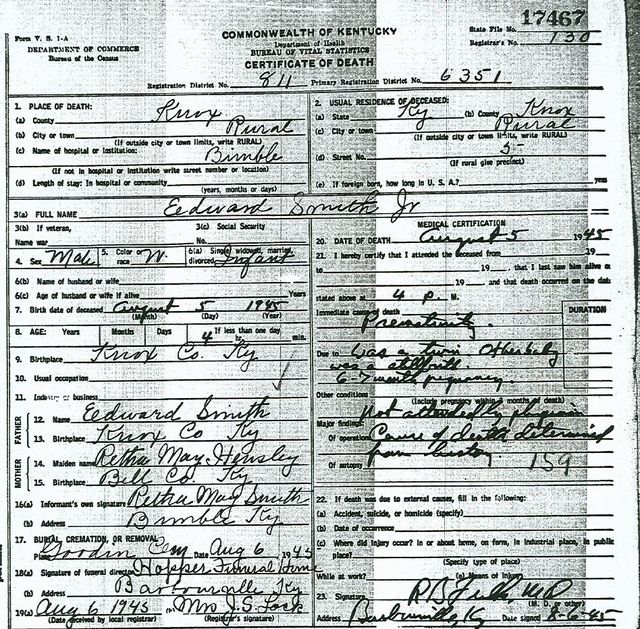 17467
COMMONWEALTH OF KENTUCKY
State File No.
Form V. S. 1-A
Department of Health
Registrar's No. 130
DEPARTMENT OF COMMERCE
BUREAU OF VITAL STATISTICS
Bureau of the Census
CERTIFICATE OF DEATH
Registration District No. 811 Primary Registration District No. 6351
1. PLACE OF DEATH:
(a) County Knox
(b) City or town Rural
(If outside city or town limits, write RURAL)
(c) Name of hospital or institution: Bimble
(If not in hospital or institution write street number or location)
(d) Length of stay: In hospital or community
(years, months or days)
2. USUAL RESIDENCE OF DECEASED:
(a) State Ky (b) County Knox
(c) City or town Rural
(If outside city or town limits, write RURAL)
(d) Street No. 5
(If rural give precinct)
(e) If foreign born, how long in U. S. A.? years
3(a) FULL NAME Eedward Smith Jr
3(b) If veteran,
Name war
3(c) Social Security
No.
4. Sex Male 5. Color or race W. 6(a) Single, widowed, married, divorced Infant
6(b) Name of husband or wife
6(c) Age of husband or wife if alive Years
7. Birth date of deceased August 5 1945
(Month) (Day) (Year)
8. AGE: Years Months Days If less than one day
4 hr. min.
9. Birthplace Knox Co. Ky
10. Usual occupation
11. Industry or business
FATHER
12. Name Eedward Smith
13. Birthplace Knox Co Ky
MOTHER
14. Maiden name Retha May Hensley
15. Birthplace Bell Co. Ky
16(a) Informant's own signature Retha May Smith
(b) Address Bimble Ky
17. BURIAL, CREMATION, OR REMOVAL
Place Goodin Cem Date Aug 6, 1945
18(a) Signature of funeral director Hopper Funeral Home
(b) Address Barbourville Ky
19(a) Aug 6 1945 (b) Mrs J. S. Lock
(Date received by local registrar) (Registrar's signature)
MEDICAL CERTIFICATION
20. DATE OF DEATH August 5 1945
21. I hereby certify that I attended the deceased from
19 , to 19 , that I last saw him alive on
19 , and that death occurred on the date
stated above at 4 P. M.
DURATION
Immediate cause of death
Prematurity.
Due to was a twin Other baby
was a stillbirth.
6-7 month pregnancy.
Other conditions
(Include pregnancy within 3 months of death)
Not attended by physician
Major findings:
Of operations Cause of death determined
from history.
Of autopsy 159
22. If death was due to external causes, fill in the following:
(a) Accident, suicide, or homicide (specify)
(b) Date of occurrence
(c) Where did injury occur? in or about home, on farm, in industrial place, in public
place?
(Specify type of place)
While at work? (e) Means of injury
23. Signature MD
(M. D. or other)
Address Barbourville, Ky Date signed 8-6-45